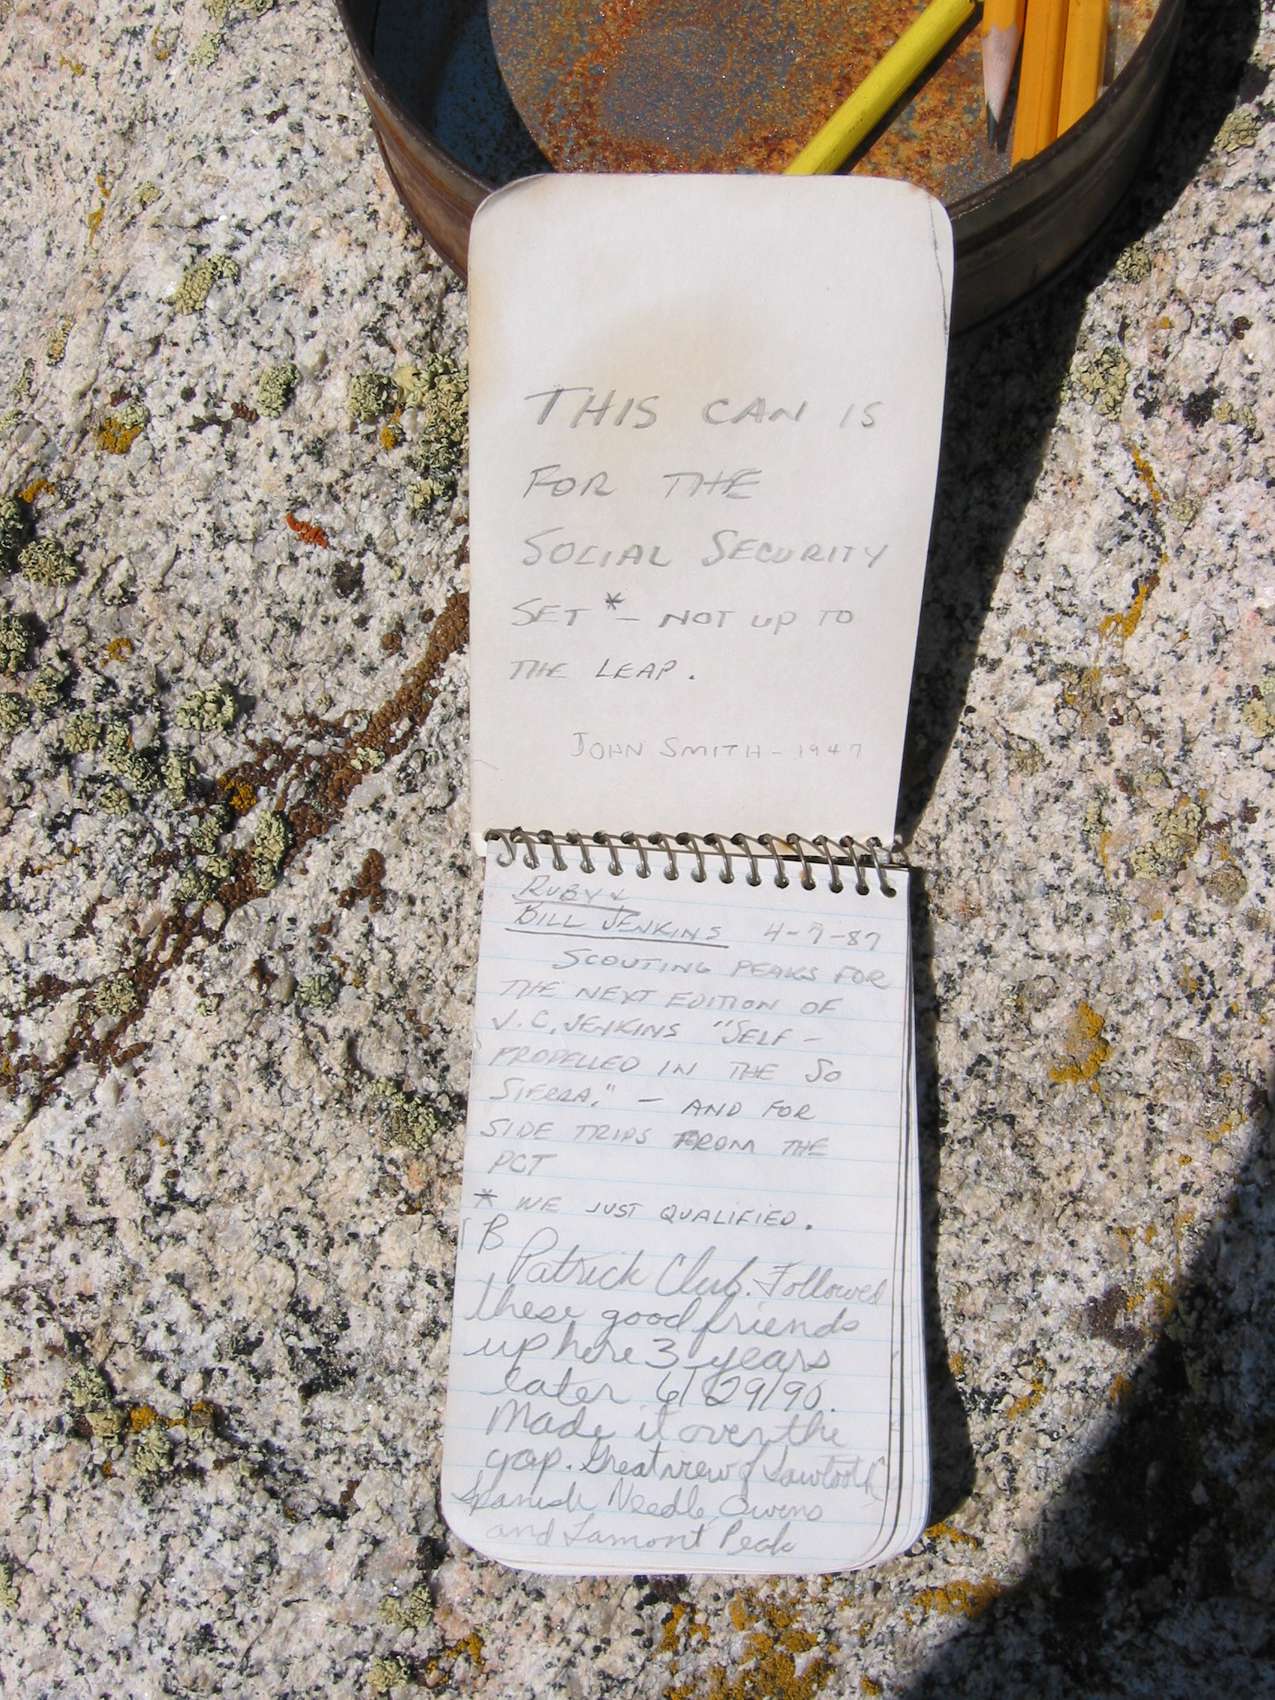 THIS CAN IS
FOR THE
SOCIAL SECURITY
SET * - NOT UP TO
THE LEAP.
JOHN SMITH - 1947
RUBY &
BILL JENKINS 4-7-87
SCOUTING PEAKS FOR
THE NEXT EDITION OF
J.C. JENKINS "SELF-
PROPELLED IN THE SO
SIERRA." - AND FOR
SIDE TRIPS FROM THE
PCT
* WE JUST QUALIFIED.
B
Patrick Club. Followed
these good friends
up here 3 years
later 6/29/90.
Made it over the
gap. Great view of Sawtooth
Spanish Needle Owens
and Lamont Peak